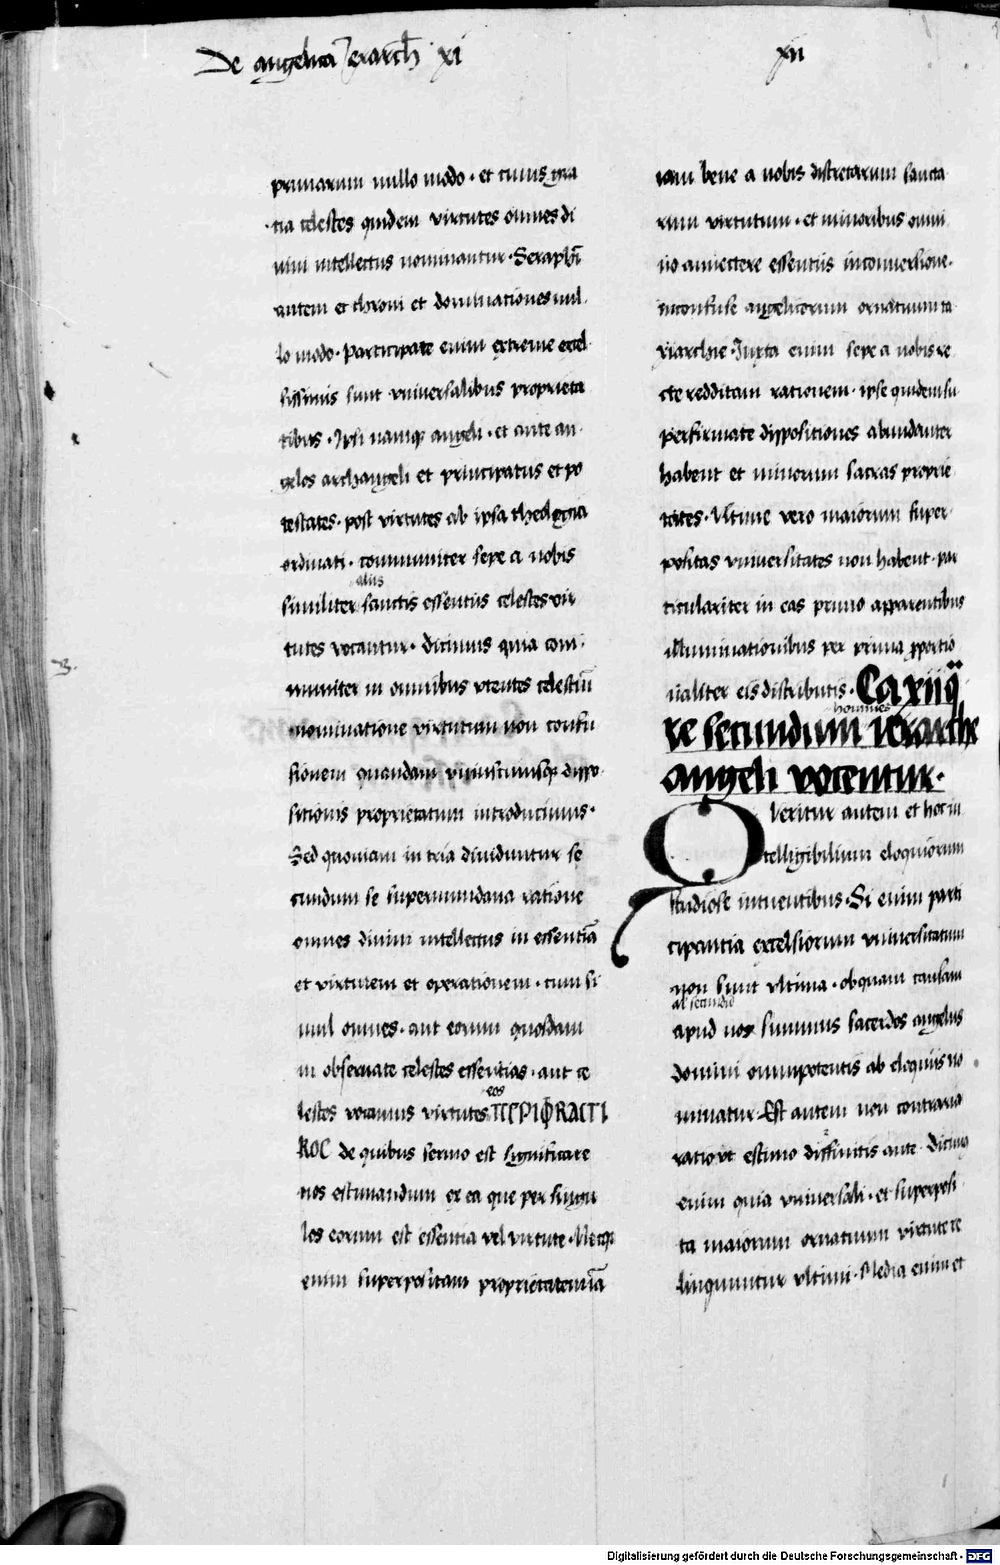 De angelica Ierarch xi
xii
primarum nullo modo · et cuius gra
tia celestes quidem virtutes omnes di
uini intellectus nominantur · Seraphī
autem et throni et dominationes nul
lo modo · Participate enim extreme excel
sissimis sunt vniuersalibus proprieta
tibus · Ipsi namq; angeli · et ante an
gelos archangeli et principatus et po
testates · post virtutes ab ipsa theologia
ordinati · communiter sepe a nobis
aliis
similiter sanctis essentiis celestes vir
tutes vocantur · dicimus quia com
muniter in omnibus vtentes celestiū
nominatione virtutum non confu
sionem quandam vniuscuiusq; dispo
sitionis proprietatum introducimus ·
Sed quoniam in tria diuiduntur se
cundum se supermundana ratione
omnes diuini intellectus in essentiā
et virtutem et operationem · cum si
mul omnes · aut eorum quosdam
in obseruate celestes essentias · aut ce
eos
lestes vocamus virtutes ΠΕΡΙΦRACTI
KOC de quibus sermo est significare
nos estimandum ex ea que per singu
los eorum est essentia vel virtute · Necq;
enim superpositam proprietatem iā
iam bene a nobis discretarum sancta
rum virtutum · et minoribus omni
no annectere essentiis inconuersione ·
inconfuse angelicorum ornatuum ta
xiarchie · Iuxta enim sepe a nobis re
cte redditam rationem · ipse quidem su
perfirmate dispositiones abundanter
habent et minorum sacras proprie
tates · Vltime vero maiorum super
positas vniuersitates non habent · par
ticulariter in eas primo apparentibus
illuminationibus per prima pportio
naliter eis distributis · Ca xiij q̄
homines
re secundum ierarche
angeli vocentur ·
Queritur autem et hoc in
telligibilium eloquiorum
studiose intuentibus · Si enim parti
cipantia excelsiorum vniuersitatum
non sunt vltima · ob quam causam
al secundū
apud nos summus sacerdos angelus
domini omnipotentis ab eloquiis no
minatur · Est autem non contraria
ratio vt estimo diffinitis ante · dicimus
enim quia vniuersali · et superposi
ta maiorum ornatuum virtute re
linquuntur vltimi · Media enim et
Digitalisierung gefördert durch die Deutsche Forschungsgemeinschaft - DFG